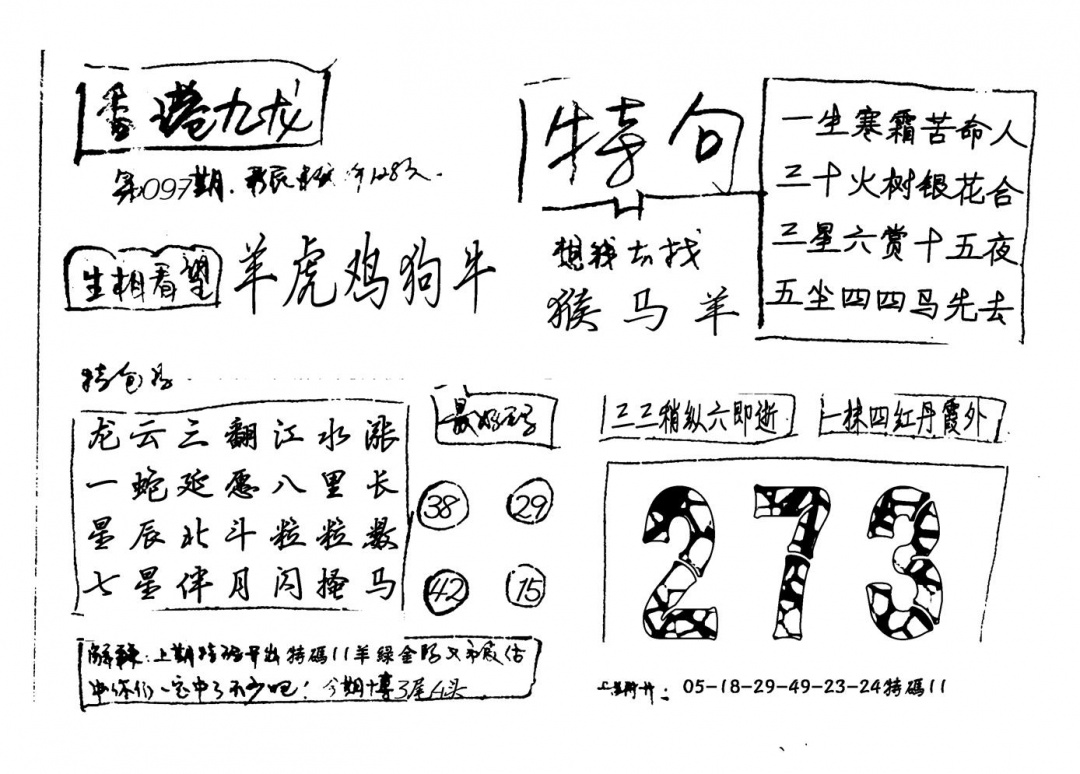 香港九龙
第097期
生相看望
羊虎鸡狗牛
特句
想我去找
猴马羊
一生寒霜苦命人
三十火树银花合
三星六赏十五夜
五坐四四鸟先去
特包
龙云三翻江水涨
一蛇延愿八里长
星辰北斗粒粒数
七星伴月闪搔马
最好
38
29
42
15
三三稍纵六即逝
一抹四红丹霞外
273
解释：上期特码开出特碼11羊绿金
中你们一定中了不少吧！今期博3尾4头
05-18-29-49-23-24特碼11